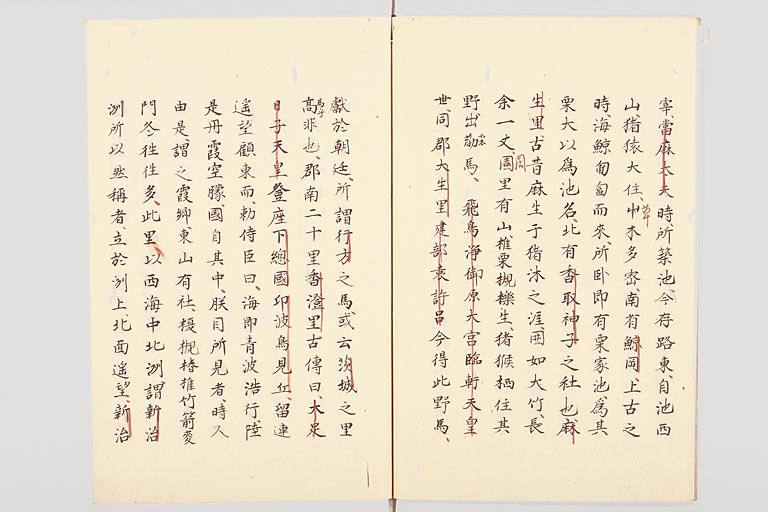 宰、當麻大夫時所築池、今存路東、自池西
山、猪猿大住、中木多密、南有鯨岡、上古之
時、海鯨匍匐而來、所卧即有栗家池、爲其
栗大以爲池名、北有香取神子之社也、麻
生里古昔麻生于猪沐之涯囲如大竹、長
余一丈、圍里有山、椎栗槻櫟生、猪猴栖住、其
野出勒馬、飛鳥淨御原大宮臨軒天皇
世、同郡大生里建部袁許呂今得此野馬、
獻於朝廷、所謂行方之馬、或云茨城之里
高非也、郡南二十里香澄里古傳曰、大足
日子天皇登座下總國印波鳥見丘、留連
遥望顧東而、勅侍臣曰、海即青波浩行陸
是丹霞空朦、國自其中、朕目所見者、時人
由是謂之霞鄉東山有社、榎槻椿椎竹箭麦
門冬往往多、此里以西海中北洲謂新治
洲所以然稱者、立於洲上、北面遥望、新治